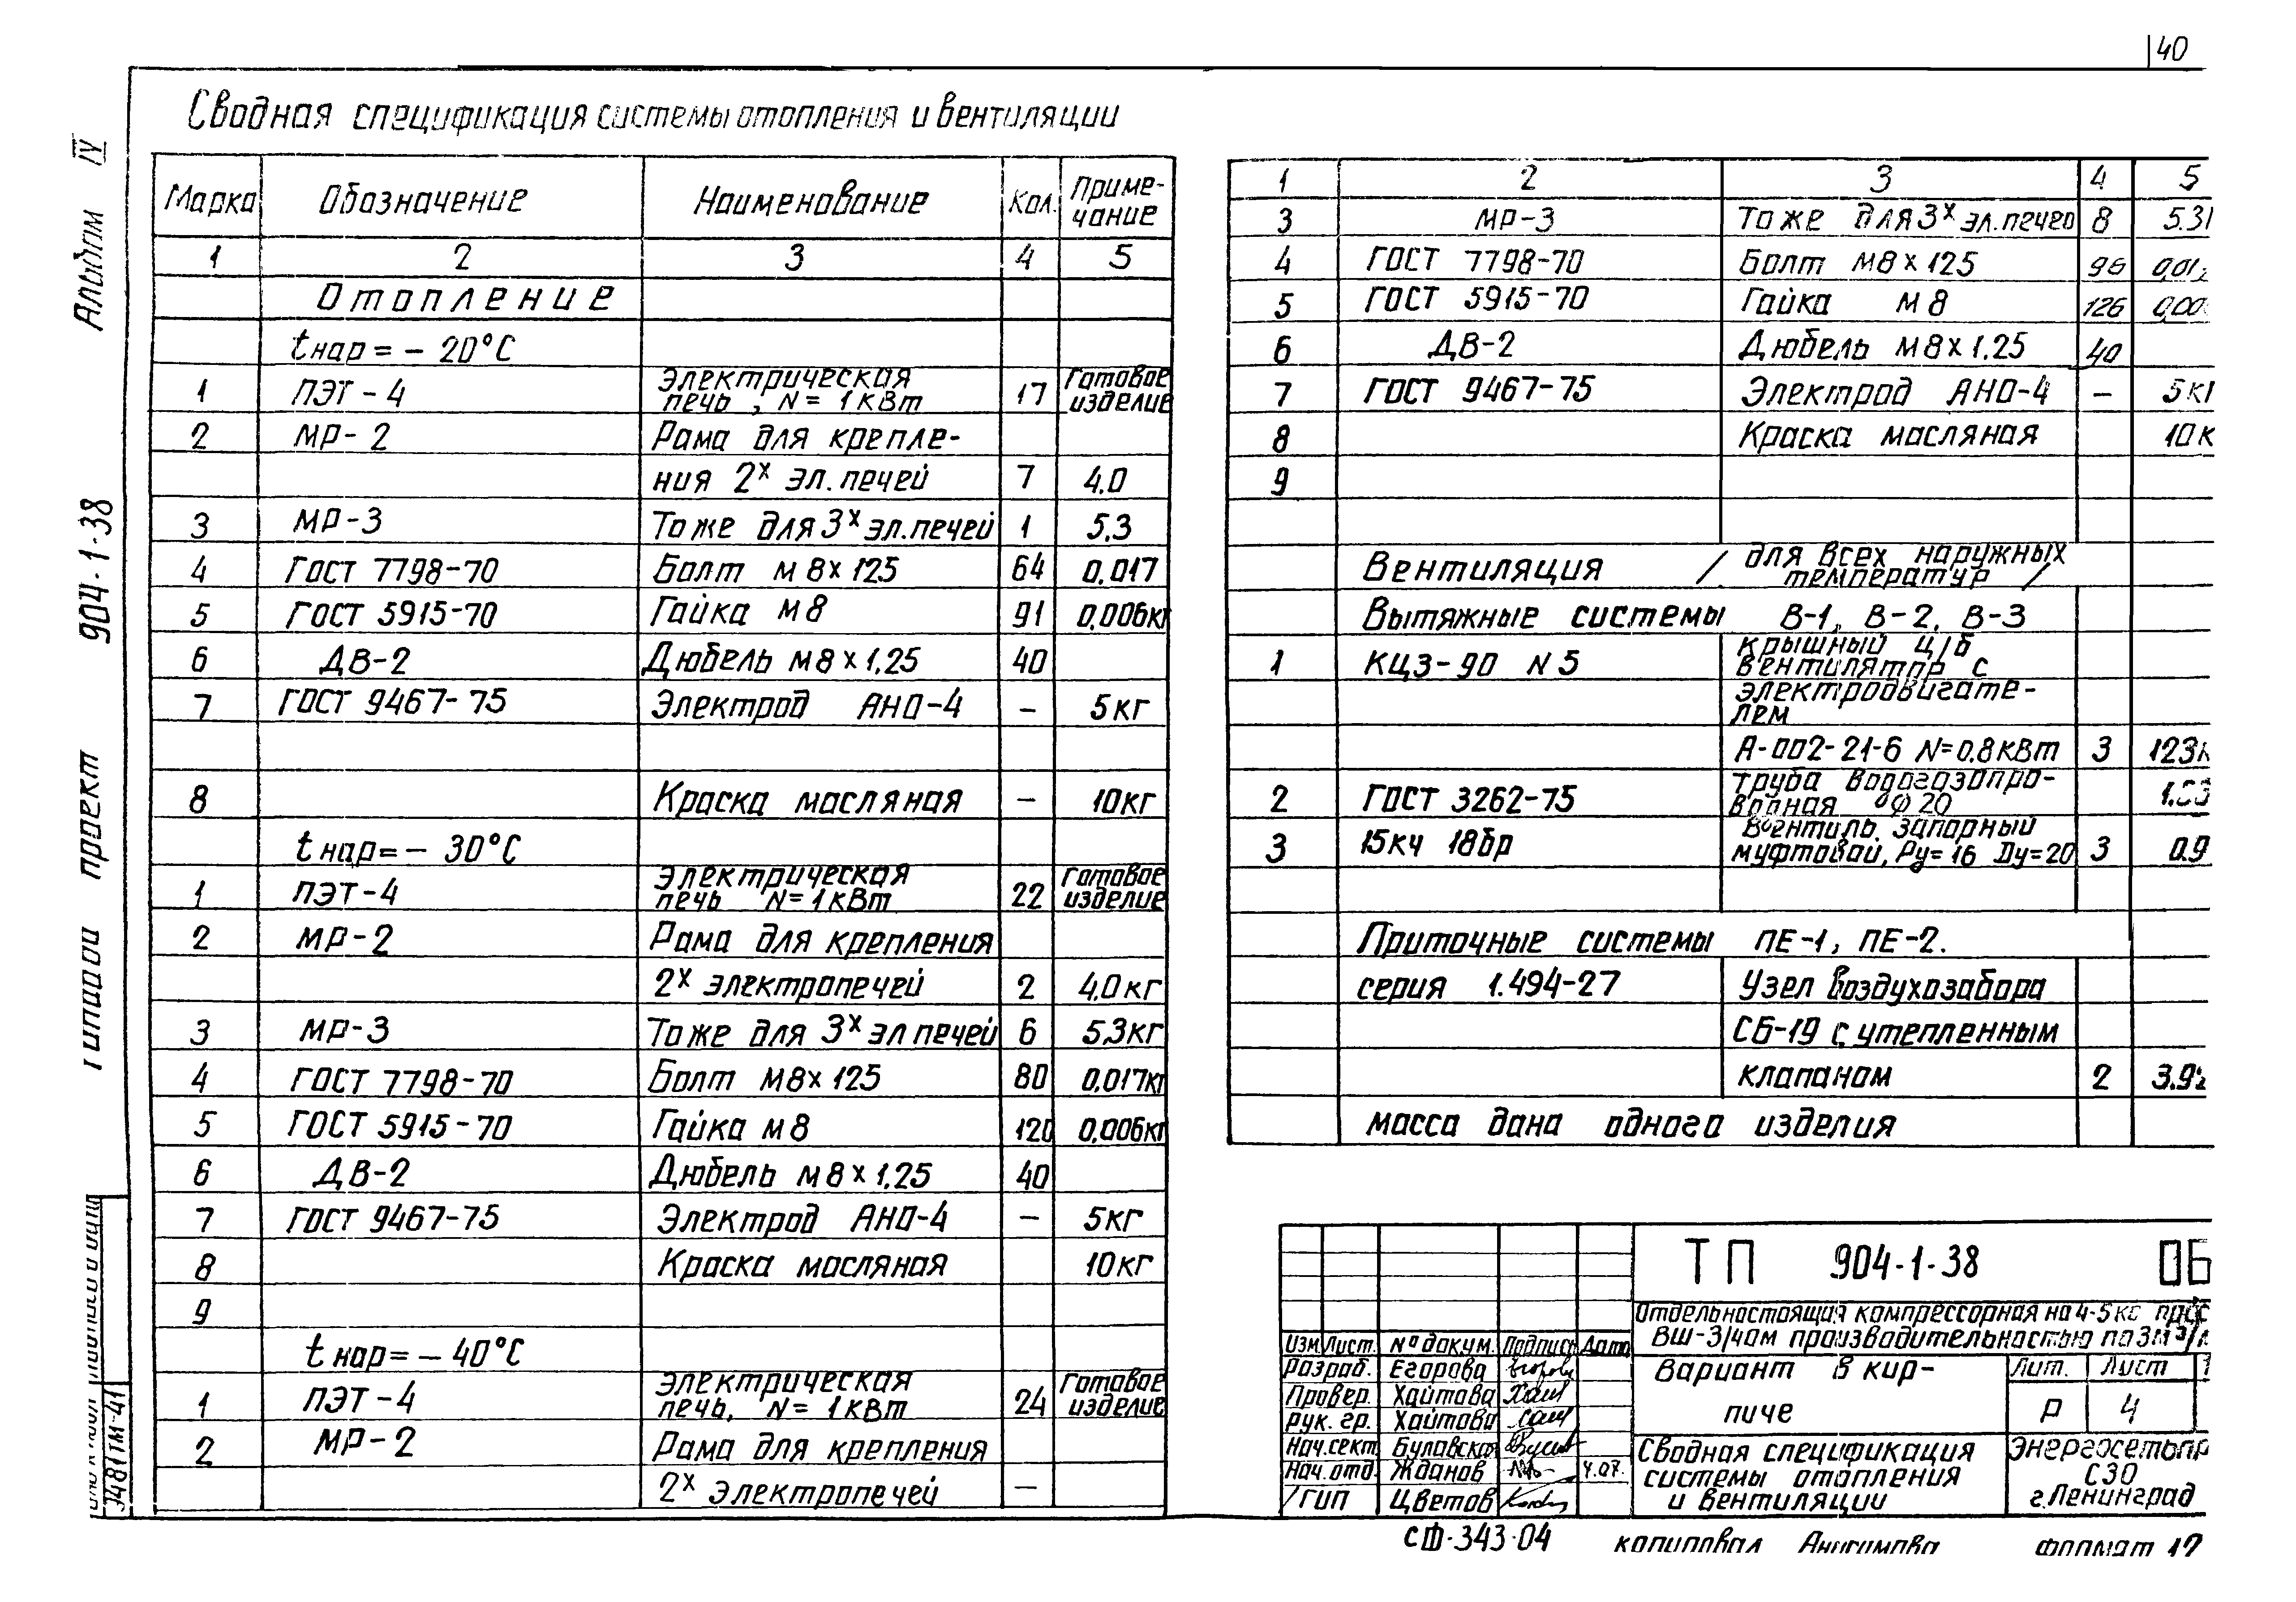 40
Сводная спецификация системы отопления и вентиляции
Альбом IV
904-1-38
Типовой проект
3481ТМ-41
Марка Обозначение Наименование Кол. Приме-
чание
1 2 3 4 5
Отопление
tнар = - 20°С
1 ПЭТ-4 Электрическая
печь, N = 1кВт 17 Готовое
изделие
2 МР-2 Рама для крепле-
ния 2х эл.печей 7 4.0
3 МР-3 То же для 3х эл.печей 1 5.3
4 ГОСТ 7798-70 Болт м 8х125 64 0.017
5 ГОСТ 5915-70 Гайка м8 91 0.006кг
6 ДВ-2 Дюбель м8х1.25 40
7 ГОСТ 9467-75 Электрод АНО-4 - 5кг
8 Краска масляная - 10кг
tнар = - 30°С
1 ПЭТ-4 Электрическая
печь N = 1кВт 22 Готовое
изделие
2 МР-2 Рама для крепления
2х электропечей 2 4.0кг
3 МР-3 То же для 3х эл печей 6 5.3кг
4 ГОСТ 7798-70 Болт м8х125 80 0.017кг
5 ГОСТ 5915-70 Гайка м8 120 0.006кг
6 ДВ-2 Дюбель м8х1.25 40
7 ГОСТ 9467-75 Электрод АНО-4 - 5кг
8 Краска масляная 10кг
9
tнар = - 40°С
1 ПЭТ-4 Электрическая
печь, N = 1кВт 24 Готовое
изделие
2 МР-2 Рама для крепления
2х электропечей -
1 2 3 4 5
3 МР-3 То же для 3х эл.печей 8 5.3
4 ГОСТ 7798-70 Болт м8х125 96 0,01
5 ГОСТ 5915-70 Гайка м8 126 0,00
6 ДВ-2 Дюбель м8х1.25 40
7 ГОСТ 9467-75 Электрод АНО-4 - 5кг
8 Краска масляная 10к
9
Вентиляция / для всех наружных
температур /
Вытяжные системы В-1, В-2, В-3
1 КЦ3-90 N5 Крышный ц/б
вентилятор с
электродвигате-
лем
А-002-21-6 N=0.8кВт 3 123к
2 ГОСТ 3262-75 Труба водогазопро-
водная ф20
3 15кч 18бр Вентиль запорный
муфтовой, Ру=16 Ду=20 3 0.9
Приточные системы ПЕ-1, ПЕ-2.
серия 1.494-27 Узел воздухозабора
СБ-19 с утепленным
клапаном 2 3.9
масса дана одного изделия
ТП 904-1-38 ОБ
Отдельностоящая компрессорная на 4-5
ВШ-3/40м производительностью по 3м³/
Изм Лист. № докум. Подпись Дата
Разраб. Егорова
Провер. Хаитова
рук. гр. Хаитова
Нач.сект. Булавская
Нач.отд. Жданов 4.07.
ГИП Цветов
Вариант в кир-
пиче
Лит. Лист
Р 4
Сводная спецификация
системы отопления
и вентиляции
Энергосетьпр
СЗО
г.Ленинград
СФ-343-04 копировал Анисимова формат 12